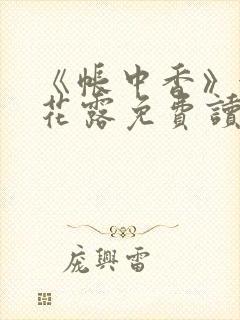 《帳中香》
花露免費讀
龐興雷